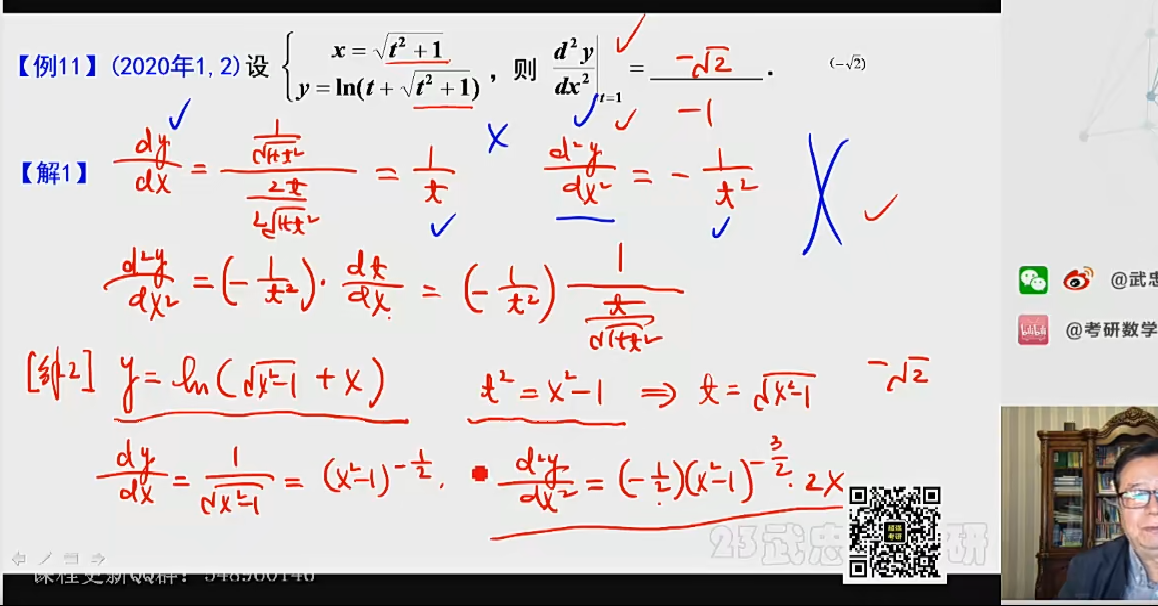 【例11】(2020年1,2)设 { x = √(t² + 1) , y = ln(t + √(t² + 1)) , 则 d²y/dx² |t=1 = -√2 . (-√2)
-1
【解1】 dy/dx = (1/√(1+t²)) / (2t/(2√(1+t²))) = 1/t × d²y/dx² = -1/t²
d²y/dx² = (-1/t²) · dt/dx = (-1/t²) 1/(t/√(1+t²))
@武忠
@考研数学
[解2] y = ln(√(x²-1) + x) t² = x²-1 ⇒ t = √(x²-1) -√2
dy/dx = 1/√(x²-1) = (x²-1)^(-1/2) . d²y/dx² = (-1/2)(x²-1)^(-3/2) · 2x
23武忠 研
课程更新QQ群：548960146